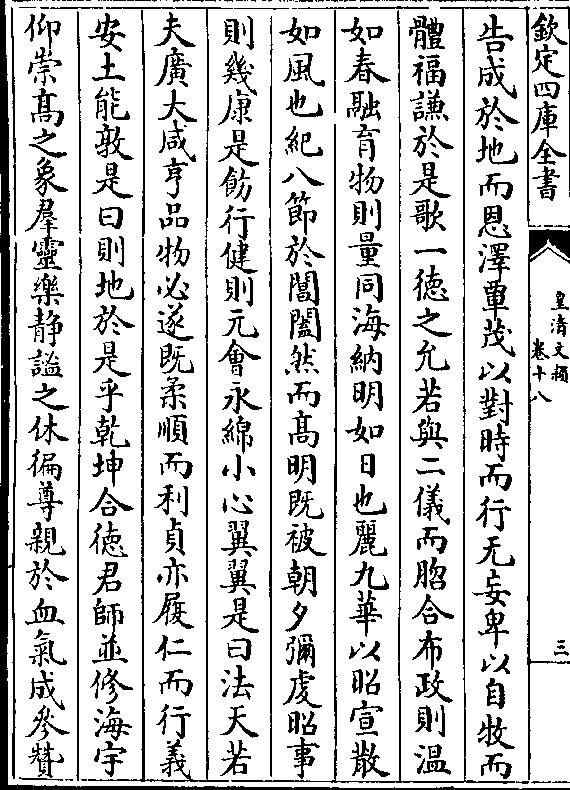 欽定四庫全書
皇清文穎
卷十八
三
告成於地而恩澤覃茂以對時而行无妄卑以自牧而
體福謙於是歌一德之允若與二儀而脗合布政則溫
如春融育物則量同海納明如日也麗九華以昭宣散
如風也紀八節於閶闔然而高明既被朝夕彌虔昭事
則幾康是飭行健則元會永綿小心翼翼是曰法天若
夫廣大咸亨品物必遂既柔順而利貞亦履仁而行義
安土能敦是曰則地於是乎乾坤合德君師並修海宇
仰崇高之象羣靈樂静謐之休徧尊親於血氣成參贊